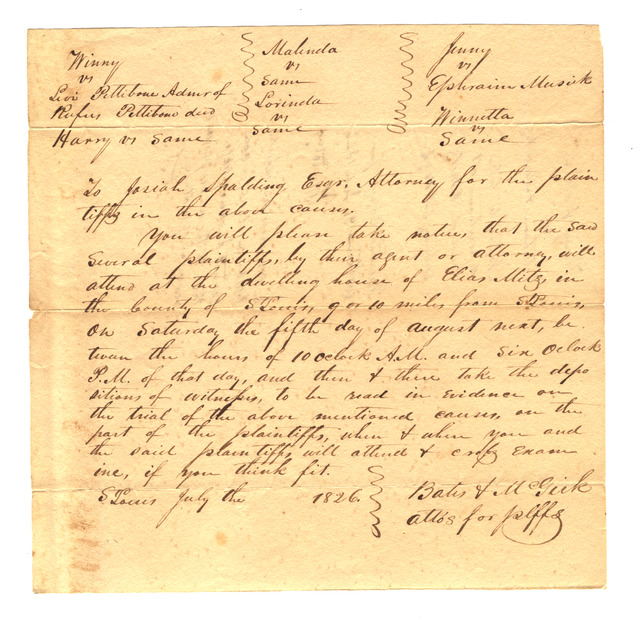 Winny
vs
Levi Pettibone Admr of
Rufus Pettibone decd
Harry vs Same
Malinda
vs
Same
Lorinda
vs
Same
Jenny
vs
Ephraim Musick
Winnetta
vs
Same
To Josiah Spalding Esqr. Attorney for the plain
tiffs in the above causes.
You will please take notice, that the said
several plaintiffs, by their agent or attorney, will
attend at the dwelling house of Elias Mitz, in
the County of St Louis, 9 or 10 miles from St Louis,
on Saturday the fifth day of august next, be
tween the hours of 10 oclock A.M. and six Oclock
P.M. of that day, and then & there take the depo
sitions of witnesses, to be read in evidence on
the trial of the above mentioned causes, on the
part of the plaintiffs, when & where you and
the said plaintiffs will attend & cross exam
ine, if you think fit.
St Louis July the 1826
Bates & McGirk
attos for plffs